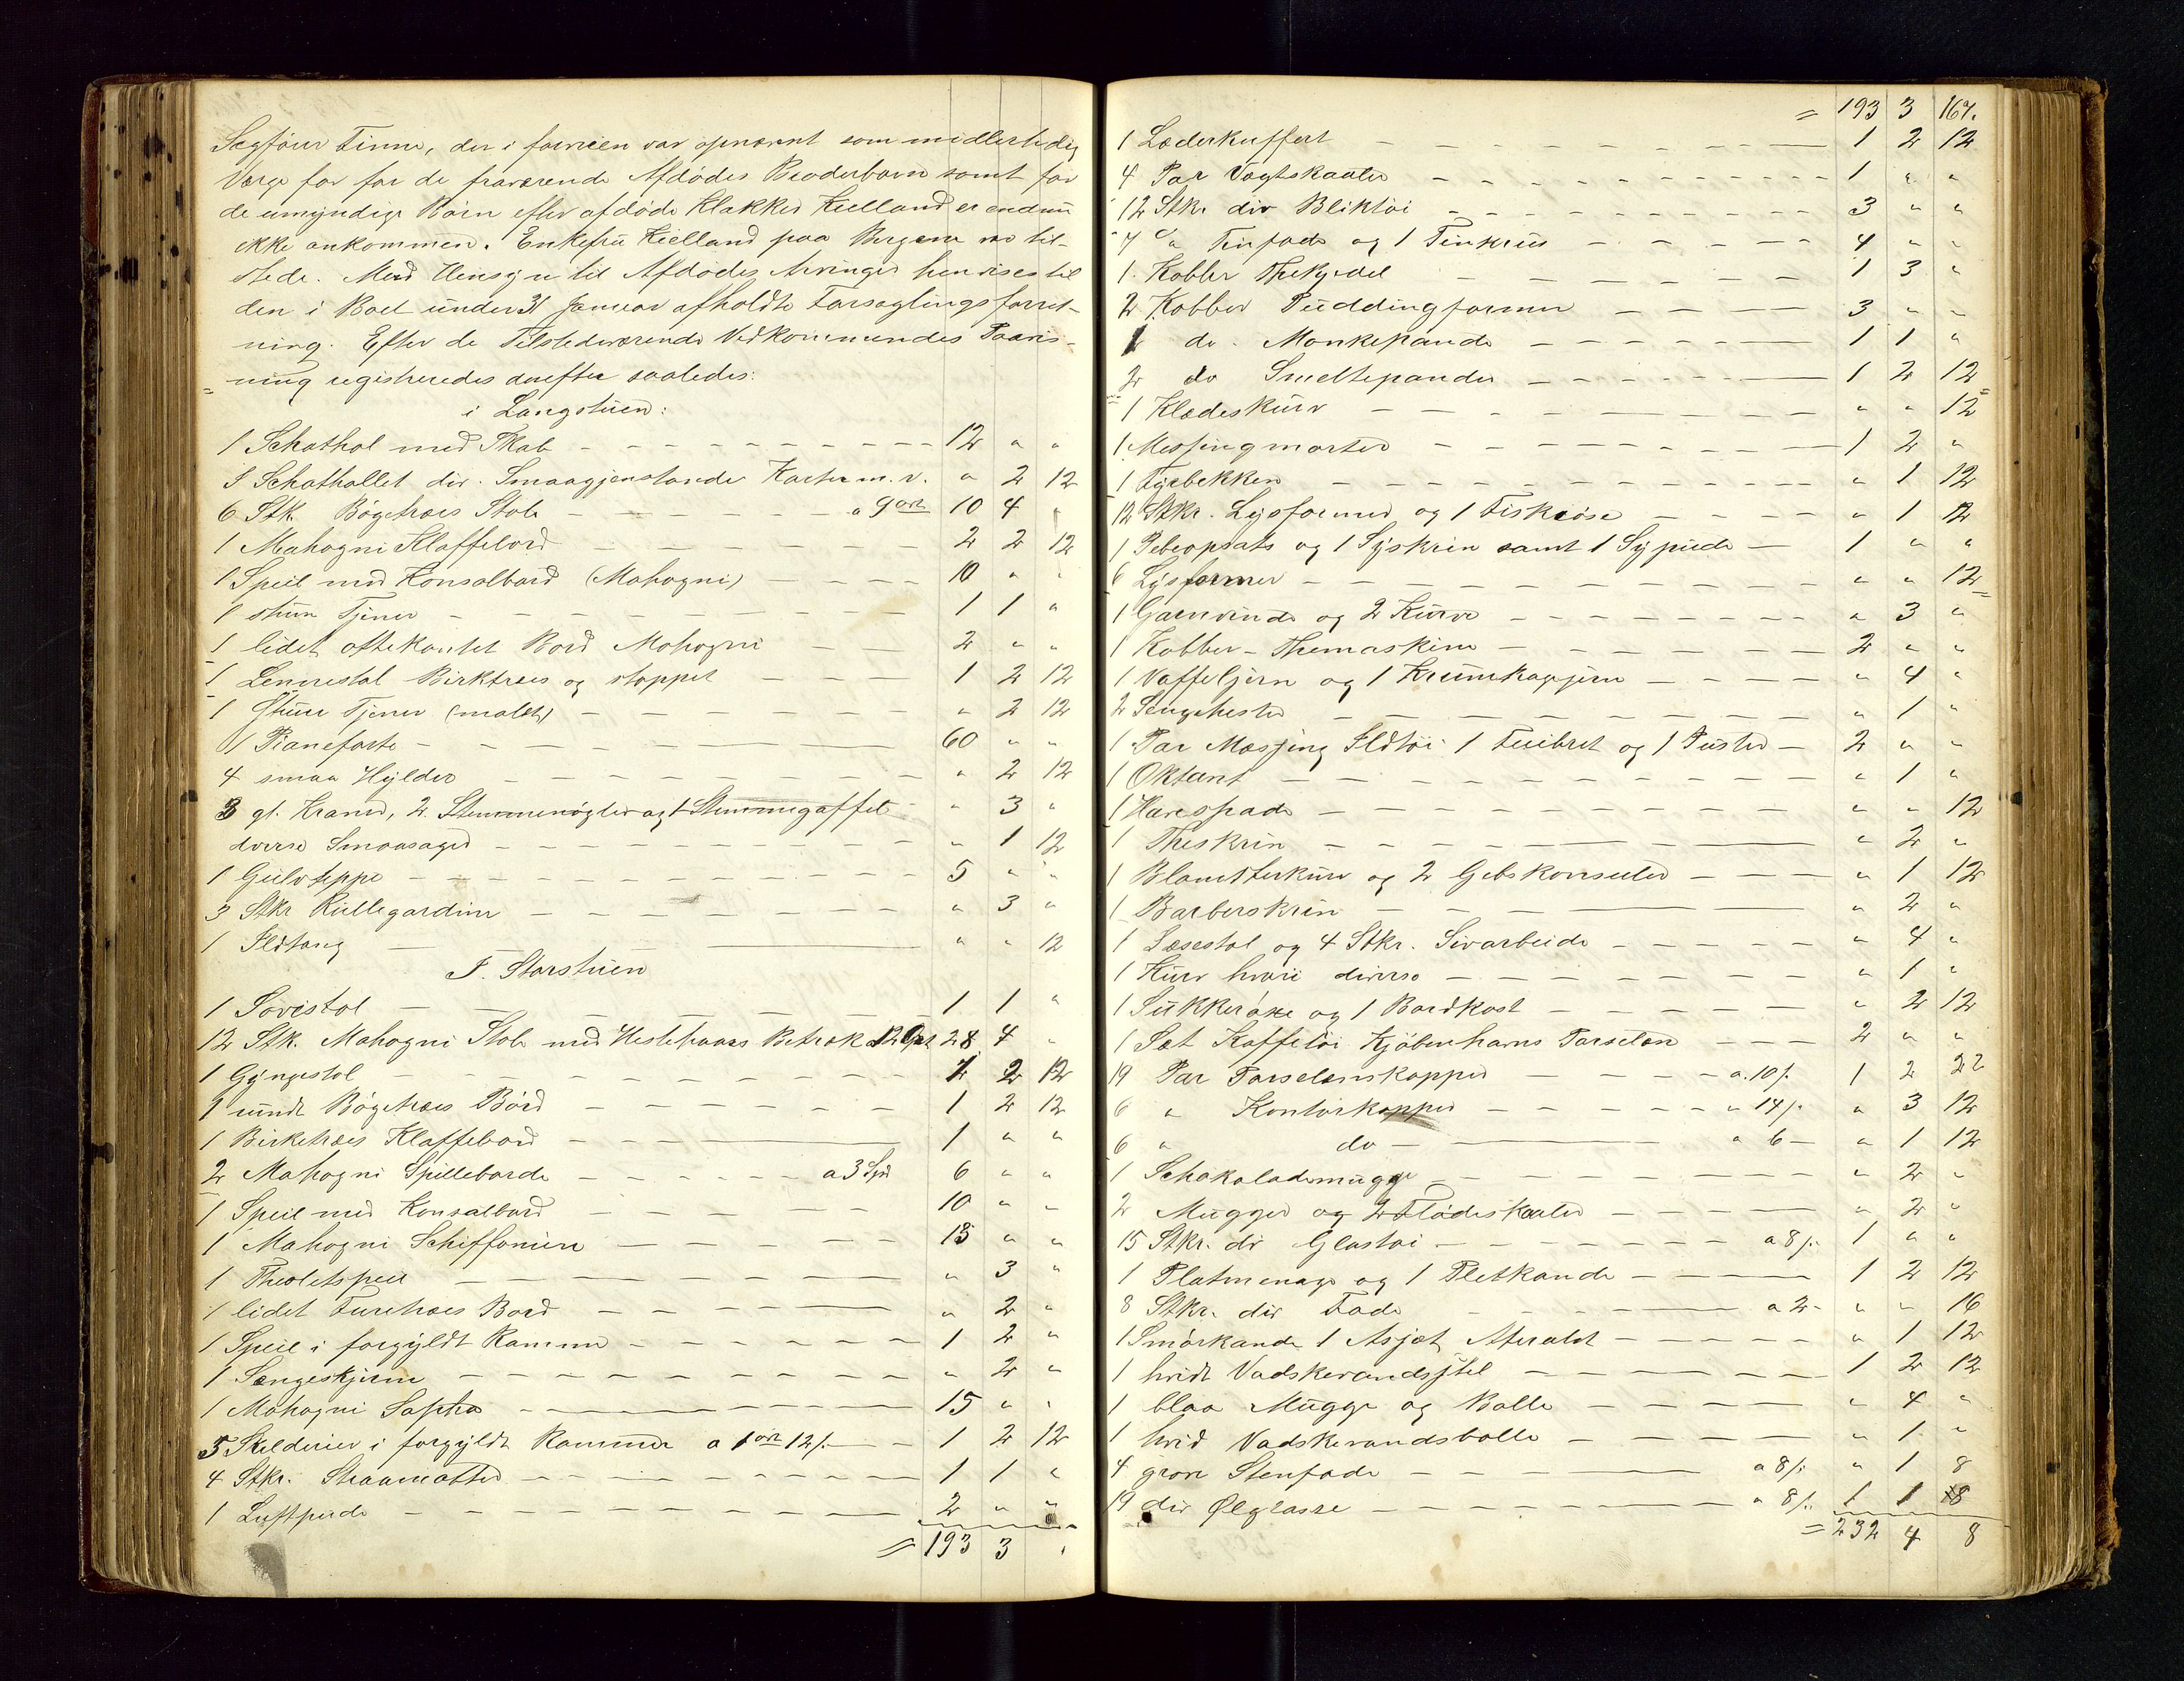 Sagfører Finne, der i forveien var opnævnt som midlertidig
Værge for for de fraværende Afdødes Broderbørn samt for
de umyndige Børn efter afdøde Klokker Kielland er endnu
ikke ankommen. Enkefru Kielland paa Bergene var til-
stede. Med Hensyn til Afdødes Arvinger henvises til
den i Boet under 31 Januar afholdte Forseglingsforret-
ning. Efter de Tilstedeværende Vedkommendes Paavis-
ning registreredes derefter saaledes:
i Langstuen:
1 Schathol med Skab 12 " "
I Schathollet div. Smaagjenstande Karter m. v. " 2 12
6 Stk. Bøgetræes Stole a 9 ort 10 4 "
1 Mahogni Klaffebord 2 2 12
1 Speil med Konsolbord (Mahogni) 10 " "
1 stum Tjener 1 1 "
1 lidet ottekantet Bord Mahogni 2 " "
1 Lænestol Birktræes og stoppet 1 2 12
1 Stum Tjener (malet) " 2 12
1 Pianoforte 60 " "
4 smaa Hylder " 2 12
3 gl. Kraner, 2 Stemmenøgler og 1 Stemmegaffel " 3 "
diverse Smaasager " 1 12
1 Gulvteppe 5 " "
3 Stkr Rullegardiner " 3 "
1 Ildtang " " 12
I. Storstuen
1 Sovestol 1 1 "
12 Stk. Mahogni Stole med Hestehaars Betræk a 12 Ort 28 4 "
1 Gyngestol 1 2 12
1 rundt Bøgetræes Bord 1 2 12
1 Birketræes Klaffebord 1 " "
2 Mahogni Spilleborde a 3 Spd 6 " "
1 Speil med Konsolbord 10 " "
1 Mahogni Schiffoniere 13 " "
1 Thoiletspeil " 3 "
1 lidet Furetræes Bord " 2 "
1 Speil i forgyldt Ramme 1 2 "
1 Sengeskjerm " 2 "
1 Mahogni Sopha 15 " "
5 Skilderier i forgyldt Rammer a 1 ort 12 s. 1 2 12
4 Stkr. Straamatter 1 1 "
1 Luftpude 2 " "
= 193 3 "
= 193 3 "
1 Læderkuffert 1 2 12
4 Par Vægtskaaler 1 " "
12 Stkr. div Bliktøi 3 " "
4 " Tinfade og 1 Tinkrus 4 " "
1 Kobber Thekjedel 1 3 "
2 Kobber Puddingformer 3 " "
1 do. Monkepande 1 1 "
2 do Smeltepander 1 2 12
1 Klædeskurv " " 12
1 Messingmorter 1 2 "
1 Fyrbekken " 1 12
12 Stkr. Lysformer og 1 Fiskeøse " 1 12
1 Peberopsats og 1 Syskrin samt 1 Sypude 1 " "
6 Lysformer " " 12
1 Garnvinde og 2 Kurve " 3 "
1 Kobber-Themaskine 2 " "
1 Vaffeljern og 1 Krumkagejern " 4 "
2 Sengehester " 1 "
1 Par Messing Ildtøi 1 Fuibret og 1 Puster 2 " "
1 Oktant " 1 "
1 Havespade " " 12
1 Theskrin " 2 "
1 Blomsterkurv og 2 Gibskonsoler " 1 12
1 Barberskrin " 2 "
1 Læsestol og 4 Stkr. Sivarbeide " 4 "
1 Kurv hvori diverse " 1 "
1 Sukkerøxe og 1 Bordkost " 2 12
1 Sæt Kaffetøi Kjøbenhavns Porselæn 2 " "
19 Par Porselænskopper a 10 s. 1 2 22
6 " Kontorkopper " 14 s. " 3 12
6 " do " 6 " 1 12
1 Schokolademugge " 2 "
2 Mugger og 2 Flødeskaaler " 2 "
15 Stkr. div Glastøi a 8 s. 1 " "
1 Platmenage og 1 Pletkande 1 2 12
8 Stkr. div Fade a 2 " " 16
1 Smørkande 1 Asjæt " 1 12
1 hvidt Vadskevandsstel 1 2 12
1 blaa Mugge og Bolle " 4 "
1 hvid Vadskevandsbolle " 1 "
4 grove Stenfade a 8 s. " 1 8
19 div Ølglasse " 8 s. 1 1 8
= 232 4 8